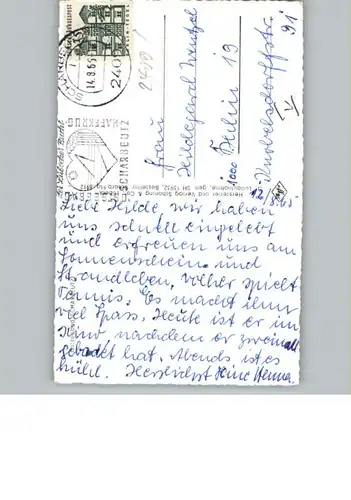 12/8.65
Liebe Hilde, wir haben
uns schnell eingelebt
und erfreuen uns am
Sonnenschein und
Strandleben, Volker spielt
Tennis. Es macht ihm
viel Spass. Heute ist er im
Kino nachdem er zweimal
gebadet hat. Abends ist es
kühl. Herzlichst Deine Henna.
Frau
Hildegard
1000 Berlin 19
Knobelsdorffstr.
91
II
2400
SCHARBEUTZ
HAFFKRUG
14.8.65
240
DEUTSCHE BUNDESPOST
Lübecker Bucht